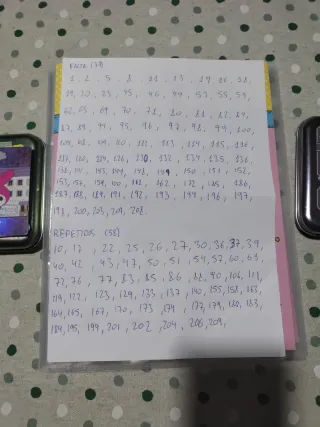 FALTA (77)
1, 2, 5, 8, 11, 13, 17, 18,
19, 20, 23, 45, 46, 49, 53, 55, 59,
62, 63, 69, 70, 71, 80, 81, 82,
87, 89, 94, 95, 96, 97, 98, 99, 100,
112, 113, 114, 115, 116,
117, 120, 124, 126, 130, 132, 134, 135, 136,
138, 141, 143, 144, 148, 149, 150, 151, 152,
153, 157, 159, 160, 161, 162, 172, 175, 186,
187, 188, 189, 191, 192, 193, 194, 196, 197,
198, 200, 203, 205, 208.
REPETIDAS (58)
10, 17, 22, 25, 26, 27, 30, 36, 37, 39,
40, 42, 43, 47, 50, 51, 54, 57, 60, 68,
72, 76, 77, 83, 85, 86, 88, 90, 106, 118,
119, 122, 123, 129, 133, 137, 140, 155, 158, 163,
164, 165, 167, 170, 173, 174, 177, 179, 180, 183,
184, 195, 199, 201, 202, 204, 206, 209,